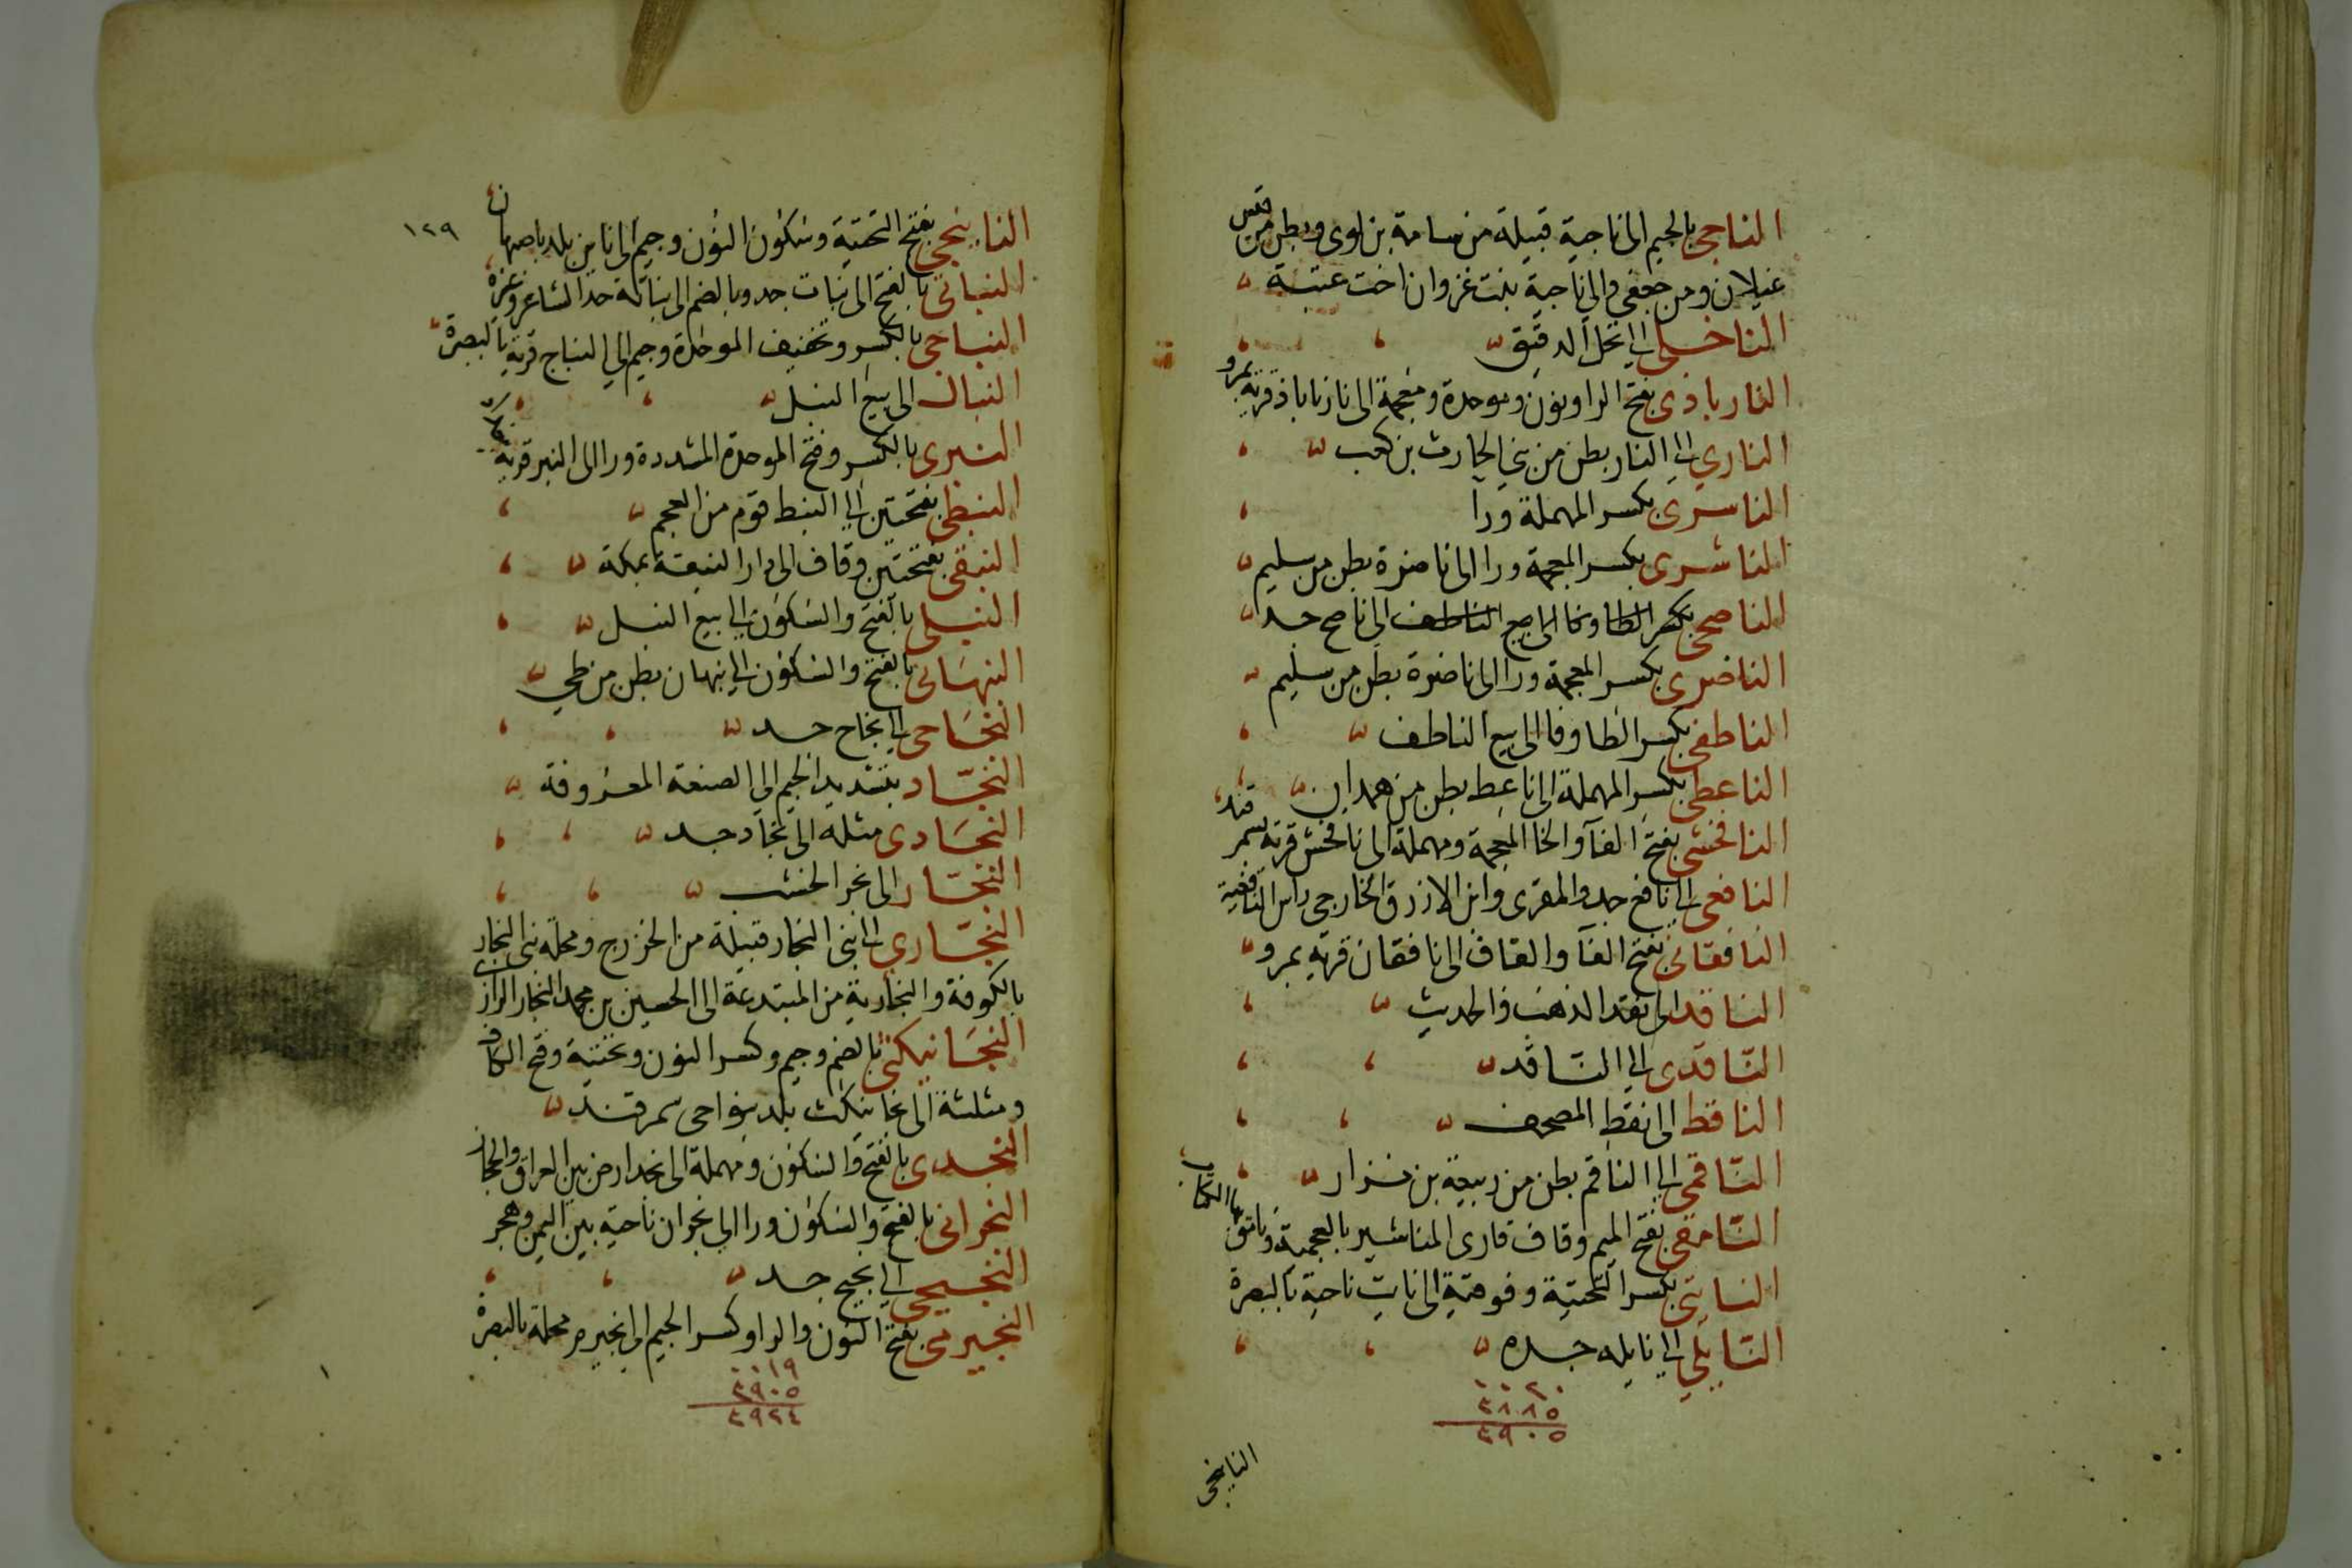 الناجي بالجيم الى ناجية قبيلة من سامة بن لوى وبطن من قيس
غيلان ومن جعفي والى ناجية بنت غزوان اخت عتبة
الناخلي الى نخل الدقيق
النارباذى بفتح الرا ونون وموحدة ومعجمة الى نارناباذ قرية بمرو
الناري الى النار بطن من بني الحارث بن كعب
الناسرى بكسر المهملة ورا
الناشرى بكسر المعجمة ورا الى ناضرة بطن من سليم
الناصحى بكسر الطا وفا الى بيع الناطف الى ناصح جد
الناضرى بكسر المعجمة ورا الى ناضرة بطن من سليم
الناطفي بكسر الطا وفا الى بيع الناطف
الناعطى بكسر المهملة الى ناعط بطن من همدان
النافخسى بفتح الفا والخا المعجمة ومهملة الى نافخس قرية بسمرقند
النافعي الى نافع جد والمقرى وابن الازرق الخارجي راس النافعية
النافقانى بفتح الفا والقاف الى نافقان قرية بمرو
الناقد الى نقد الذهب والحديث
الناقدى الى الناقد
الناقط الى نقط المصحف
الناقمى الى الناقم بطن من ربيعة بن نزار
النامقى بفتح الميم وقاف قارى المناشير بالعجمية
النايتى بكسر التحتية وفوقية الى نايت ناحية بالبصرة
النايلي الى نايله جده
٠٠٢٠
٤٨٨٥
٤٩٠٥
الناينجى
١٢٩
الناينجي بفتح التحتية وسكون النون وجيم الى ناين بلد باصبهان
النباتى بالفتح الى نبات جد وبالضم الى نباتة جد الشاعر وغيره
النباجى بالكسر وتخفيف الموحدة وجيم الى النباج قرية بالبصرة
النبال الى بيع النبل
النبرى بالكسر وفتح الموحدة المشددة ورا الى النبر قرية
النبطى بفتحتين الى النبط قوم من العجم
النبقى بفتحتين وقاف الى دار النبقة بمكة
النبلى بالفتح والسكون الى بيع النبل
النبهانى بالفتح والسكون الى نبهان بطن من طي
النجاحى الى نجاح جد
النجاد بتشديد الجيم الى الصنعة المعروفة
النجادى مثله الى نجاد جد
النجار الى نجر الخشب
النجاري الى بنى النجار قبيلة من الخزرج ومحلة بنى النجار
بالكوفة والنجارية من المبتدعة الى الحسين بن محمد النجار الرازي
النجانيكثى بالضم وجيم وكسر النون وتحتية وفتح الكاف
ومثلثة الى نجانيكث بلد بنواحى سمرقند
النجدى بالفتح والسكون ومهملة الى نجد ارض بين العراق والحجاز
النجرانى بالفتح والسكون ورا الى نجران ناحية بين اليمن وهجر
النجيحى الى نجيح جد
النجيرمى بفتح النون والرا وكسر الجيم الى نجيرم محلة بالبصرة
٠٠١٩
٤٩٠٥
٤٩٢٤